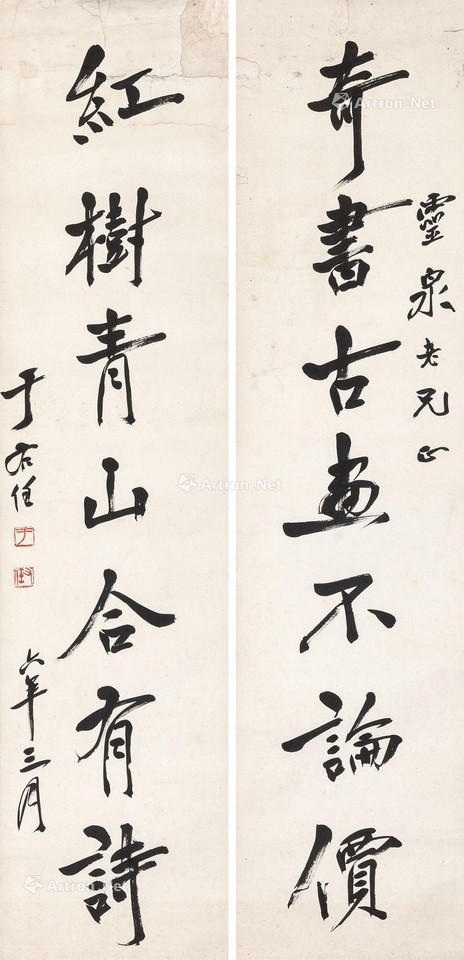 奇書古畫不論價
靈泉老兄正
紅樹青山合有詩
于右任
六年三月
Artron.Net
Artron.Net
Artron.Net
Artron.Net